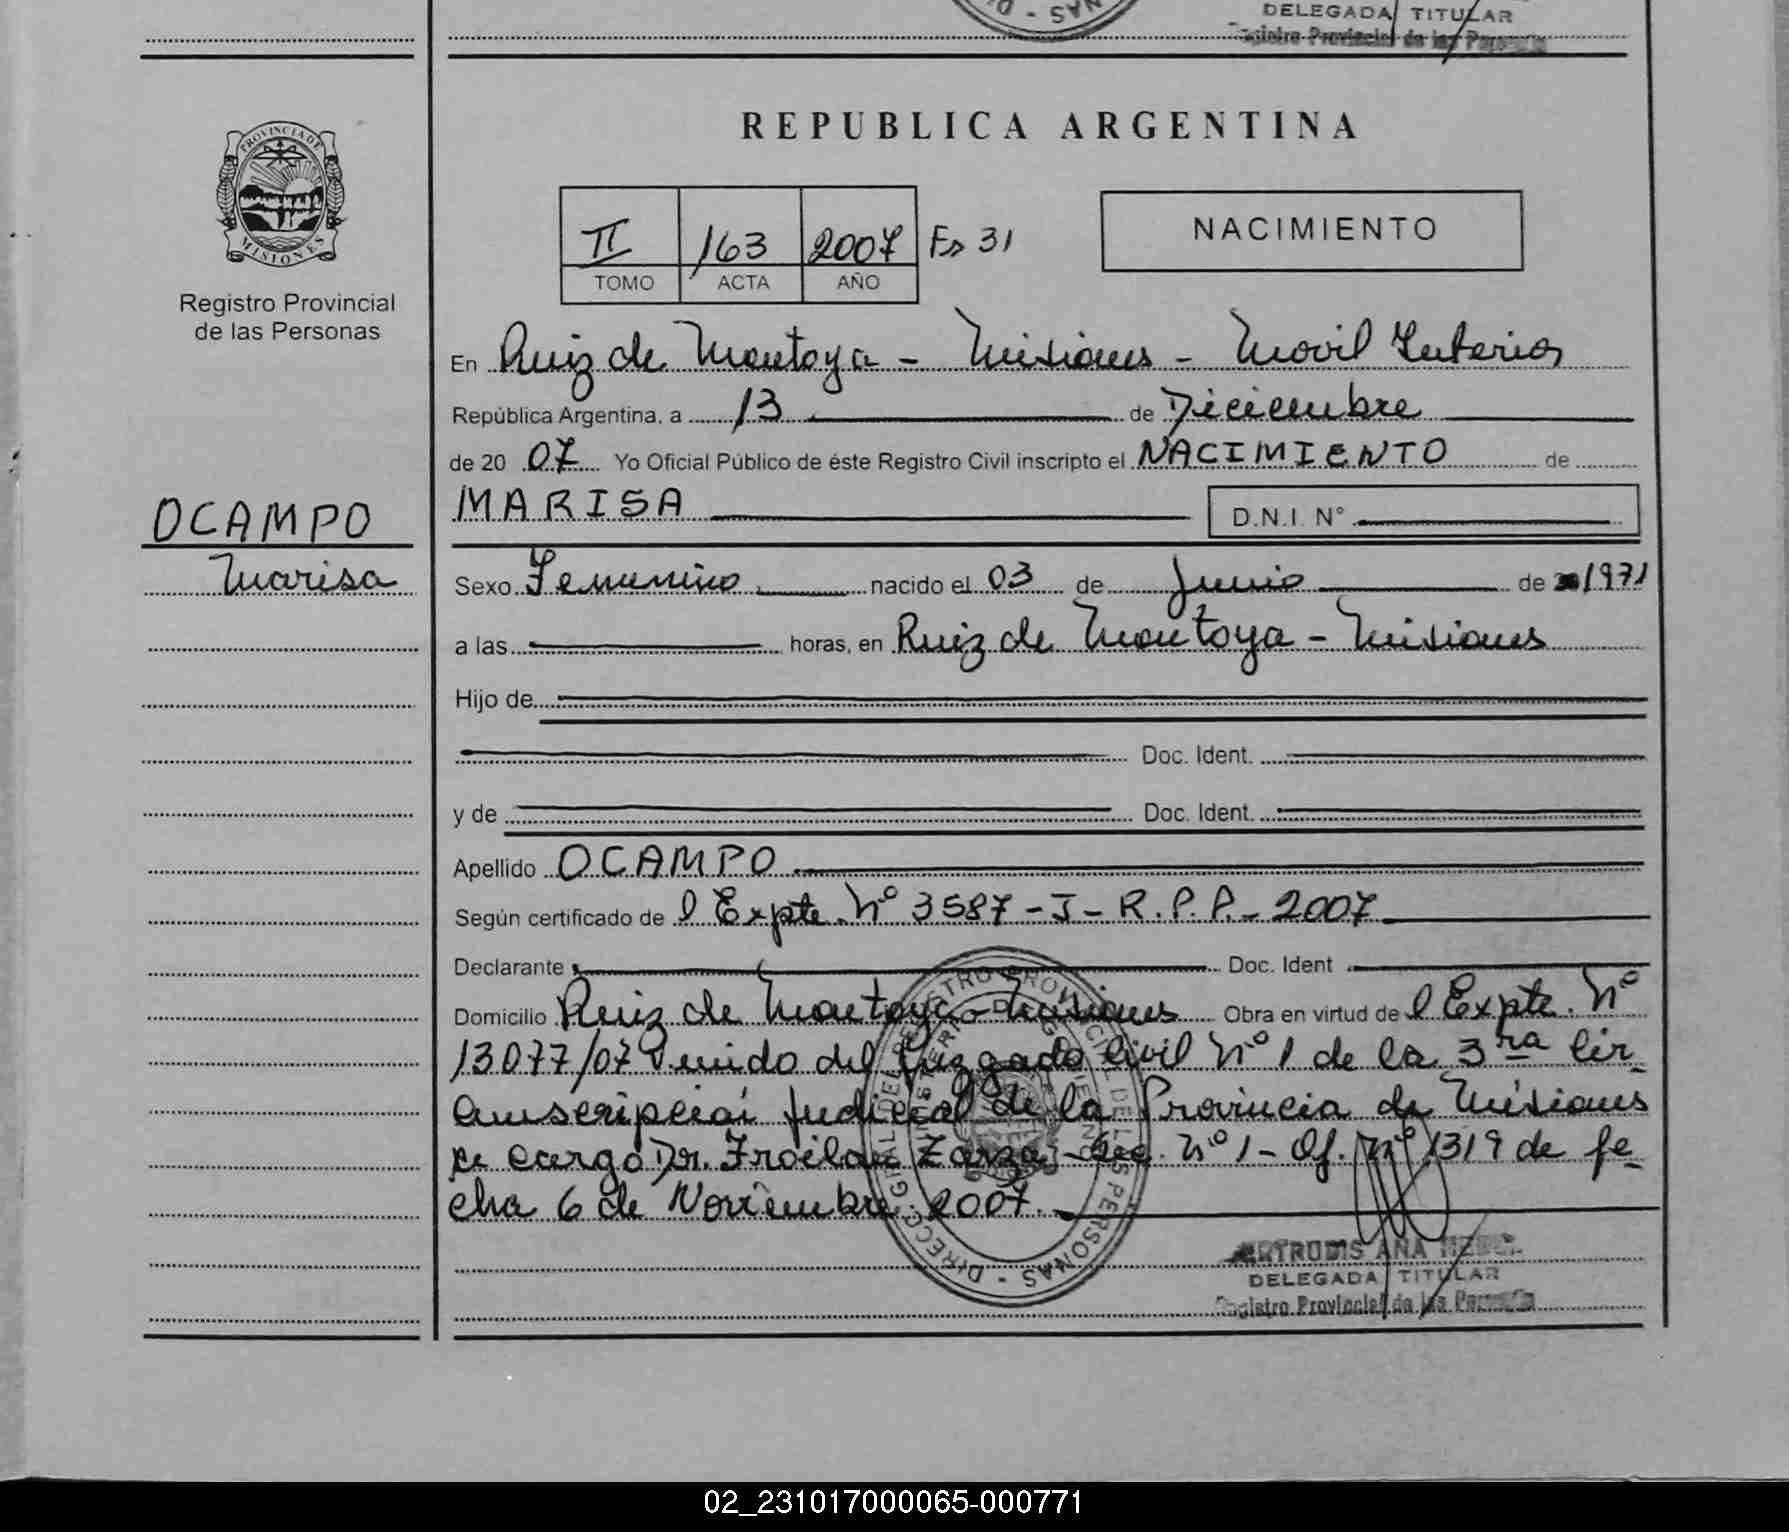 DELEGADA TITULAR
Registro Provincial de las Personas
PROVINCIA DE
MISIONES
Registro Provincial
de las Personas
REPUBLICA ARGENTINA
II 163 2007 Fº 31
TOMO ACTA AÑO
NACIMIENTO
En Ruiz de Montoya - Misiones - Movil Interior
República Argentina, a 13 de Diciembre
de 20 07 Yo Oficial Público de éste Registro Civil inscripto el NACIMIENTO de
OCAMPO
Marisa
MARISA D.N.I. N°
Sexo Femenino nacido el 03 de Junio de 1971
a las horas, en Ruiz de Montoya - Misiones
Hijo de
Doc. Ident.
y de Doc. Ident.
Apellido OCAMPO
Según certificado de l Expte. Nº 3587 - J - R.P.P. - 2007
Declarante Doc. Ident
Domicilio Ruiz de Montoya - Misiones Obra en virtud de l Expte. Nº
13077/07 venido del Juzgado Civil Nº 1 de la 3ra Cir
cunscripcion Judicial de la Provincia de Misiones
a cargo Dr. Froilan Zarza - Sec. Nº 1 - Of. Nº 1319 de fe
cha 6 de Noviembre 2007.
ANA
DELEGADA TITULAR
Registro Provincial de las Personas
02_231017000065-000771